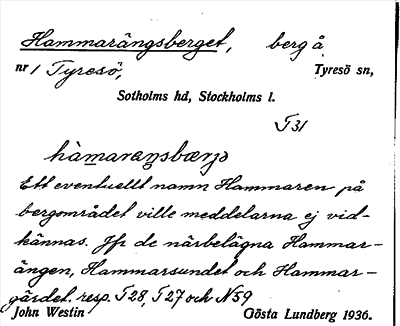 Hammarängsberget, berg å
nr 1 Tyresö, Tyresö sn,
Sotholms hd, Stockholms l.
T31
hàmaraŋsbærjə
Ett eventuellt namn Hammaren på
bergområdet ville meddelarna ej vid-
kännas. Jfr de närbelägna Hammar-
ängen, Hammarsundet och Hammar-
gärdet resp. T28, T27 och N59
John Westin Gösta Lundberg 1936.